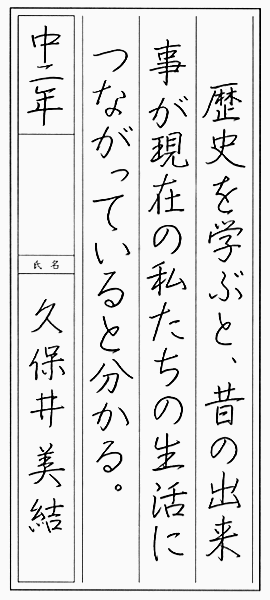 歴史を学ぶと、昔の出来
事が現在の私たちの生活に
つながっていると分かる。
中二年
氏名
久保井美結